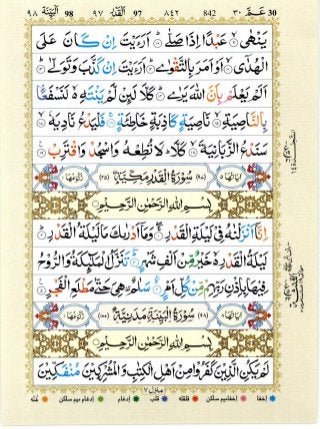 ٩٨ البينة 98 ٩٧ القدر 97 ٨٤٢ 842 ٣٠ عم 30
يَنْهٰى ۙ عَبْدًا اِذَا صَلّٰى ؕ اَرَءَيْتَ اِنْ كَانَ عَلَى
الْهُدٰٓى ۙ اَوْ اَمَرَ بِالتَّقْوٰى ؕ اَرَءَيْتَ اِنْ كَذَّبَ وَتَوَلّٰى ؕ
اَلَمْ يَعْلَمْ بِاَنَّ اللّٰهَ يَرٰى ؕ كَلَّا لَئِنْ لَّمْ يَنْتَهِ ۙ لَنَسْفَعًۢا
بِالنَّاصِيَةِ ۙ نَاصِيَةٍ كَاذِبَةٍ خَاطِئَةٍ ۚ فَلْيَدْعُ نَادِيَهٗ ۙ
سَنَدْعُ الزَّبَانِيَةَ ۙ كَلَّا ؕ لَا تُطِعْهُ وَاسْجُدْ وَاقْتَرِبْ
اٰيَاتُهَا ٥ (٩٧) سُوْرَةُ الْقَدْرِ مَكِّيَّةٌ (٢٥) رُكُوْعُهَا
بِسْمِ اللّٰهِ الرَّحْمٰنِ الرَّحِيْمِ
اِنَّآ اَنْزَلْنٰهُ فِيْ لَيْلَةِ الْقَدْرِ ۚ وَمَآ اَدْرٰىكَ مَا لَيْلَةُ الْقَدْرِ ؕ
لَيْلَةُ الْقَدْرِ ۙ خَيْرٌ مِّنْ اَلْفِ شَهْرٍ ؕ تَنَزَّلُ الْمَلٰٓئِكَةُ وَالرُّوْحُ
فِيْهَا بِاِذْنِ رَبِّهِمْ ۚ مِنْ كُلِّ اَمْرٍ ۙ سَلٰمٌ ۛ هِيَ حَتّٰى مَطْلَعِ الْفَجْرِ
اٰيَاتُهَا ٨ (٩٨) سُوْرَةُ الْبَيِّنَةِ مَدَنِيَّةٌ (١٠٠) رُكُوْعُهَا
بِسْمِ اللّٰهِ الرَّحْمٰنِ الرَّحِيْمِ
لَمْ يَكُنِ الَّذِيْنَ كَفَرُوْا مِنْ اَهْلِ الْكِتٰبِ وَالْمُشْرِكِيْنَ مُنْفَكِّيْنَ
منزل ٧
اخفا اخفا میم ساكن قلقله قلب ادغام ادغام میم ساكن غنه